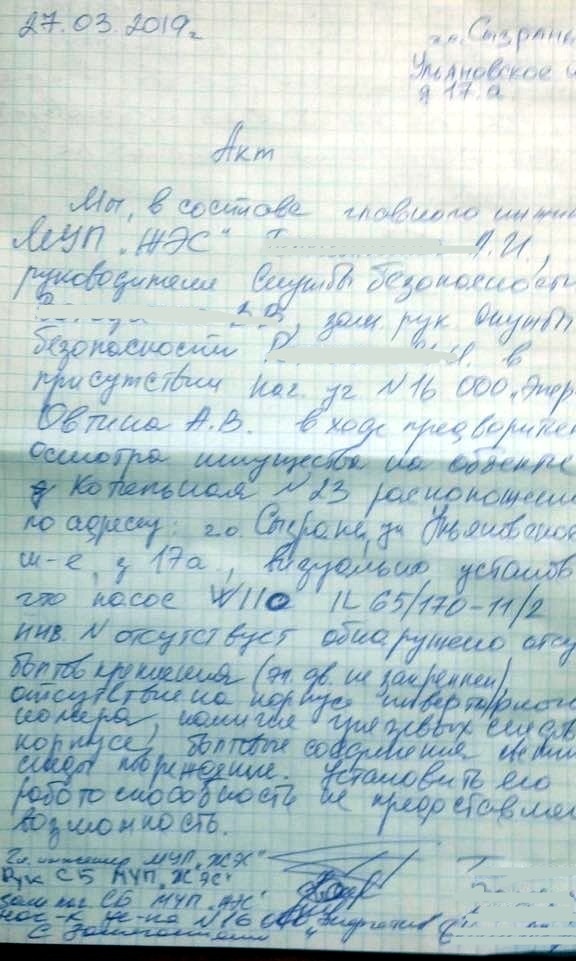 27.03.2019г.
г.о. Сызрань
Ульяновское
д 17 а
Акт
Мы, в составе главного инжен
МУП „ЖЭС" А.И.,
руководителя Службы безопасности
В.В, зам. рук службы
безопасности в
присутствии нач. уч N16 ООО „Энер
Овтина А.В. в ходе предварител
осмотра имущества на объекте
Котельная N23 расположен
по адресу: г.о. Сызрань, ул Ульяновское
ш-е, д 17а, визуально установ
что насос WILO IL 65/170-11/2
инв. N отсутствует обнаружено отсу
болтов крепления (эл. дв. не закреплен)
отсутствие на корпусе инвентарного
номера, наличие грязевых следов
корпусе, болтовые соединения
следы
Установить его
работоспособность не представляе
возможность.
Гл. инженер МУП „ЖЭС"
Рук СБ МУП „ЖЭС"
Зам рук СБ МУП „ЖЭС"
N16 ООО
С Замечаниями